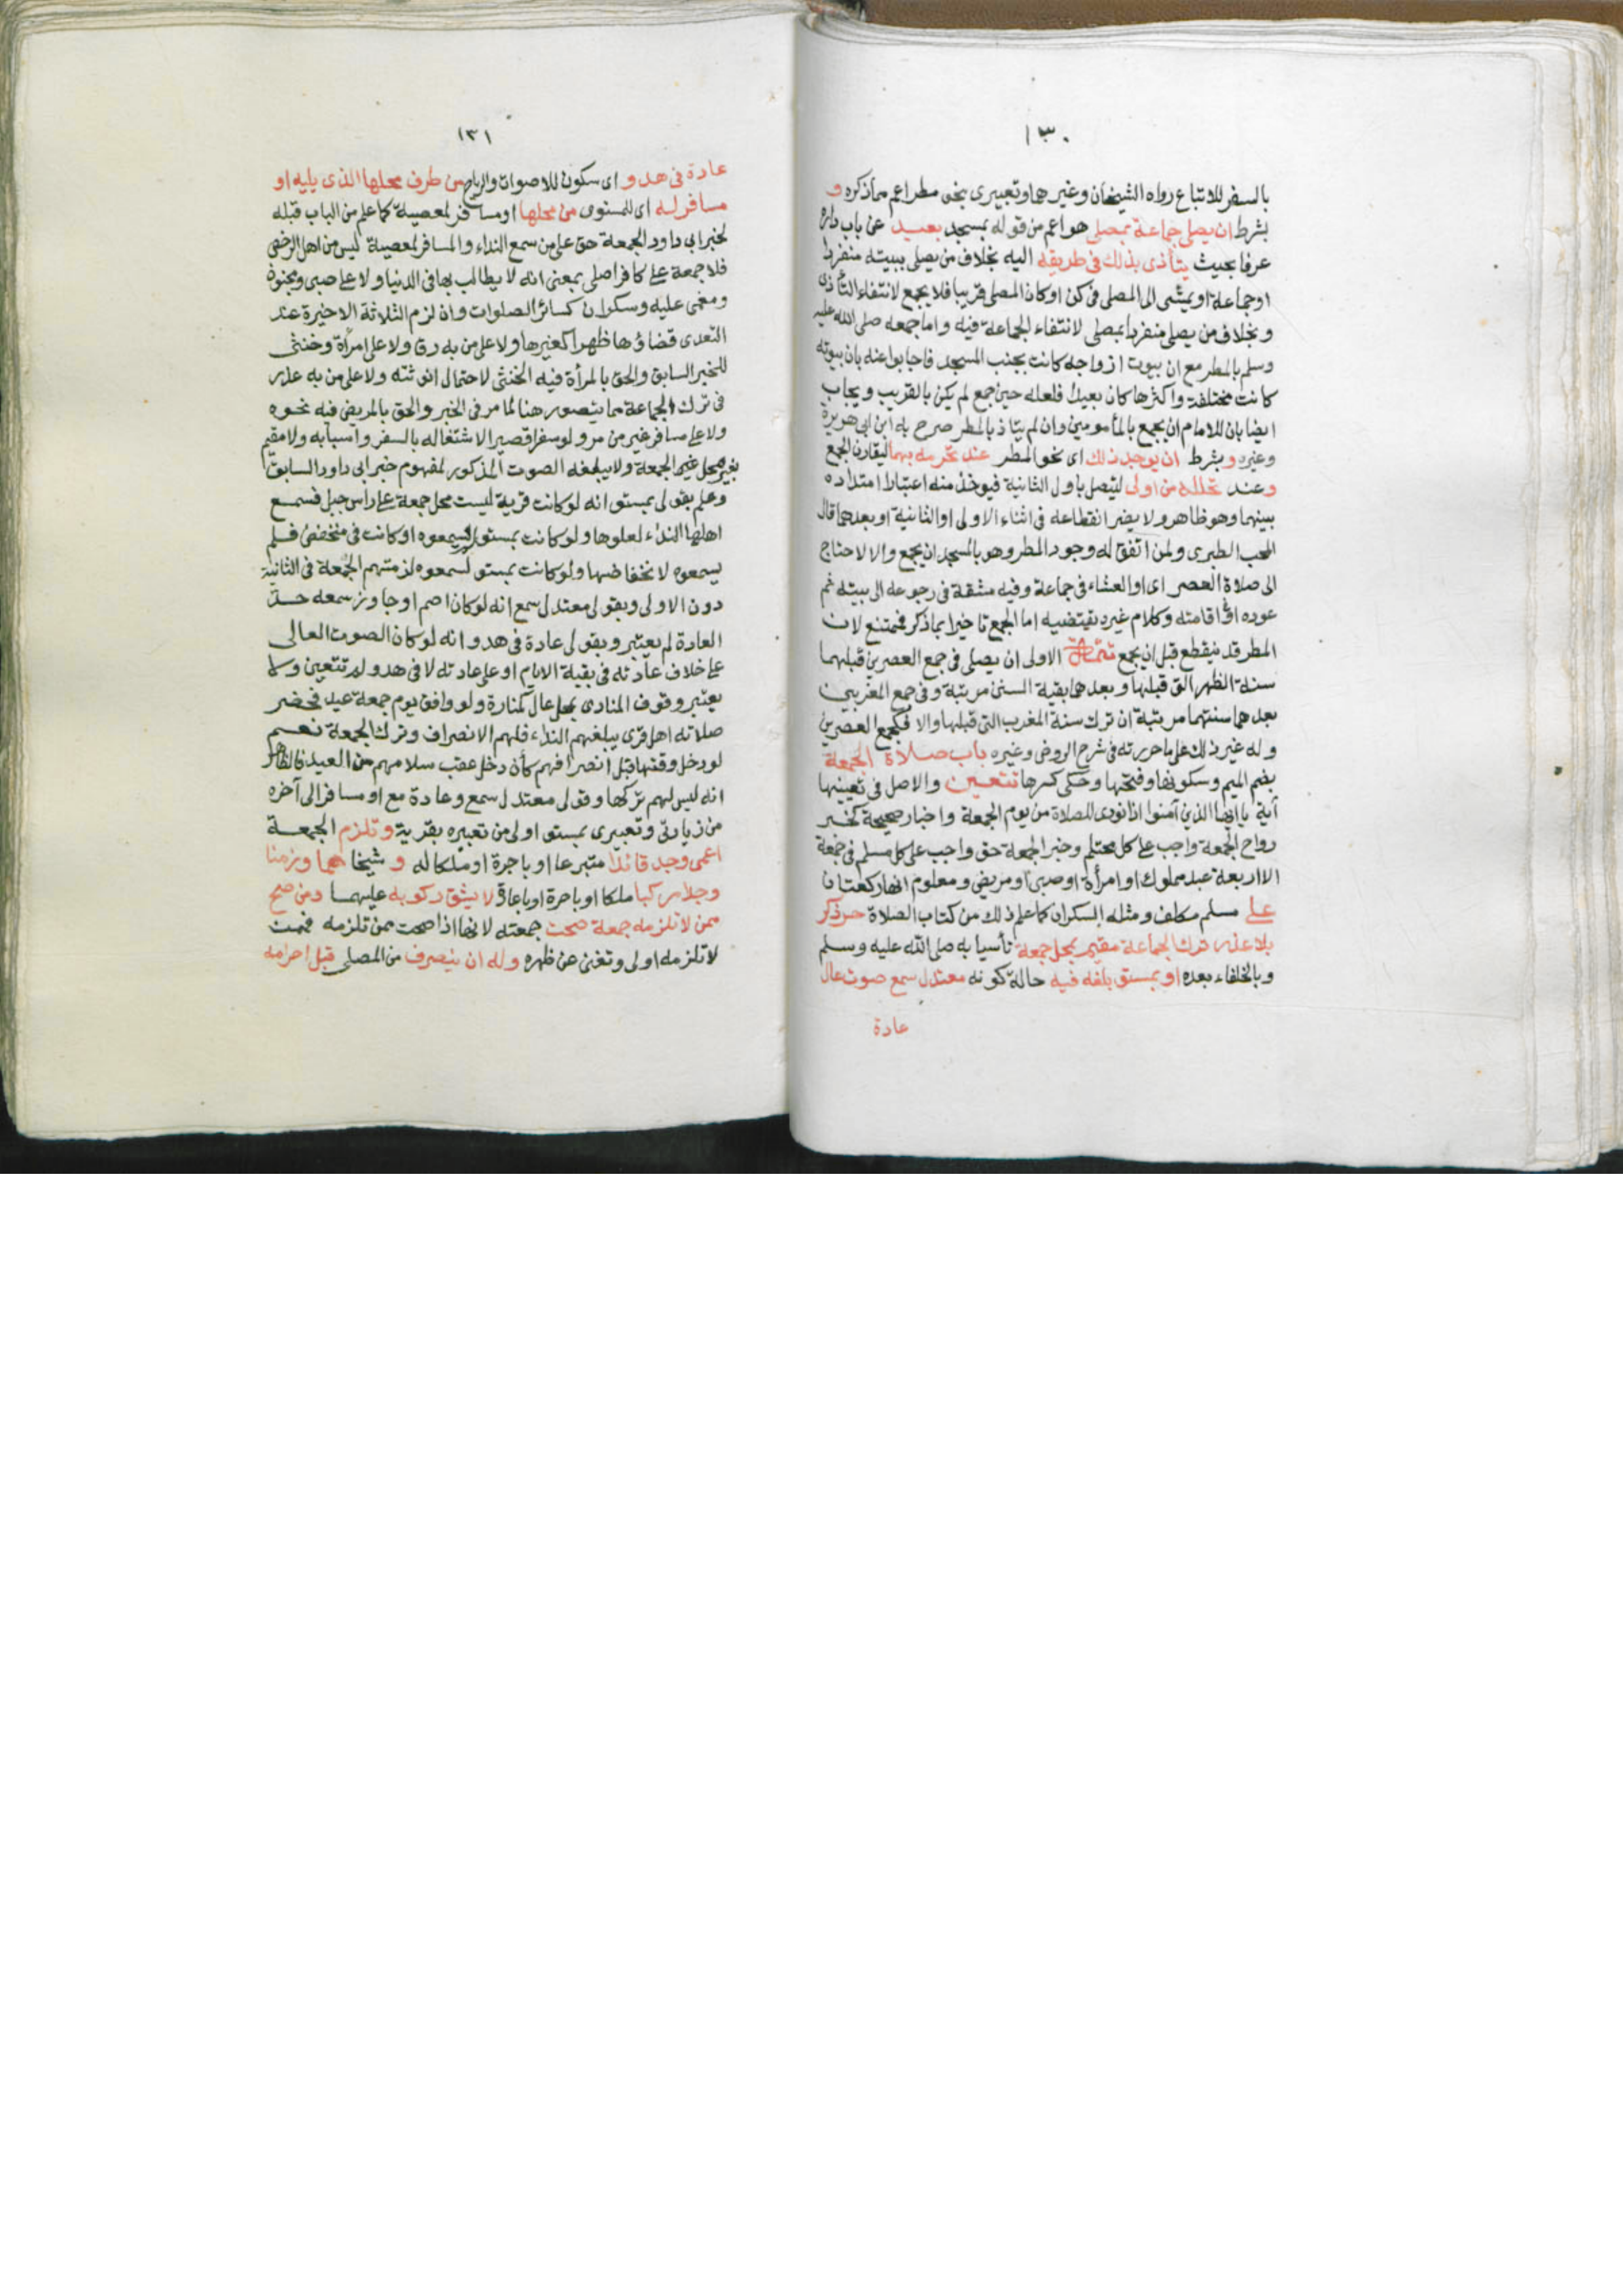 ١٣٠
بالسفر للاتباع رواه الشيخان وغيرهما وتعبيرى بنحو مطر اعم مما ذكره و
بشرط ان يصلى جماعة بمصلى هو اعم من قوله بمسجد بعيد عن باب داره
عرفا بحيث يتأذى بذلك فى طريقه اليه بخلاف من يصلى ببيته منفردا
او جماعة او يمشى الى المصلى فى كن او كان المصلى قريبا فلا يجمع لانتفاء التأذى
وبخلاف من يصلى منفردا بمصلى لانتفاء الجماعة فيه واما جمعه صلى الله عليه
وسلم بالمطر مع ان بيوت ازواجه كانت بجنب المسجد فاجابوا عنه بان بيوته
كانت مختلفة واكثرها كان بعيدا فلعله حين جمع لم يكن بالقريب ويجاب
ايضا بان للامام ان يجمع بالمأمومين وان لم يتأذ بالمطر صرح به ابن ابى هريرة
وغيره وبشرط ان يوجد ذلك اى نحو المطر عند تحرمه بهما ليقارن الجمع
وعند تحلله من اولى ليتصل باول الثانية فيوخذ منه اعتبار امتداده
بينهما وهو ظاهر ولا يضر انقطاعه فى اثناء الاولى او الثانية او بعدهما قال
المحب الطبرى ولمن اتفق له وجود المطر وهو بالمسجد ان يجمع والا لاحتاج
الى صلاة العصر اى او العشاء فى جماعة وفيه مشقة فى رجوعه الى بيته ثم
عوده او اقامته وكلام غيره يقتضيه اما الجمع تاخيرا بما ذكر فممتنع لان
المطر قد ينقطع قبل ان يجمع تتمة الاولى ان يصلى فى جمع العصرين قبلهما
سنة الظهر التى قبلها وبعدهما بقية السنن مرتبة وفى جمع المغربين
بعدهما سنتهما مرتبة ان ترك سنة المغرب التى قبلها والا فكجمع العصرين
وله غير ذلك على ما حررته فى شرح الروض وغيره باب صلاة الجمعة
بضم الميم وسكونها وفتحها وحكى كسرها تتعين والاصل فى تعيينها
آية يا ايها الذين آمنوا اذا نودى للصلاة من يوم الجمعة واخبار صحيحة كخبر
رواح الجمعة واجب على كل محتلم وخبر الجمعة حق واجب على كل مسلم فى جماعة
الا اربعة عبد مملوك او امرأة او صبى او مريض ومعلوم انها ركعتان
على مسلم مكلف ومثله السكران كما علم ذلك من كتاب الصلاة حر ذكر
بلا عذر ترك الجماعة مقيم بمحل جمعة تأسيا به صلى الله عليه وسلم
وبالخلفاء بعده او بمستو بلغه فيه حالة كونه معتدل سمع صوت عال
عادة
١٣١
عادة فى هدو اى سكون للاصوات والرياح من طرف محلها الذى يليه او
مسافر له اى للمستوى من محلها او مسافر لمعصية كما علم من الباب قبله
لخبر ابى داود الجمعة حق على من سمع النداء والمسافر لمعصية ليس من اهل الرخص
فلا جمعة على كافر اصلى بمعنى انه لا يطالب بها فى الدنيا ولا على صبى ومجنون
ومغمى عليه وسكران كسائر الصلوات وان لزم الثلاثة الاخيرة عند
التعدى قضاؤها ظهرا كغيرها ولا على من به رق ولا على امرأة وخنثى
للخبر السابق والحق بالمرأة فيه الخنثى لاحتمال انوثته ولا على من به عذر
فى ترك الجماعة مما يتصور هنا لما مر فى الخبر والحق بالمريض فيه نحوه
ولا على مسافر غير من مر ولو سفرا قصيرا لاشتغاله بالسفر واسبابه ولا مقيم
بغير محل الجمعة ولا يبلغه الصوت المذكور لمفهوم خبر ابى داود السابق
وعلم بقولى بمستو انه لو كانت قرية ليست محل جمعة على راس جبل فسمع
اهلها النداء لعلوها ولو كانت بمستو لم يسمعوه او كانت فى منخفض فلم
يسمعوه لانخفاضها ولو كانت بمستو لسمعوه لزمتهم الجمعة فى الثانية
دون الاولى وبقولى معتدل سمع انه لو كان اصم او جاوز سمعه حد
العادة لم يعتبر وبقولى عادة فى هدو انه لو كان الصوت العالى
على خلاف عادته فى بقية الايام او على عادته لا فى هدو لم تتعين ولا
يعتبر وقوف المنادى بمحل عال كمنارة ولو وافق يوم جمعة عيد فحضر
صلاته اهل قرى يبلغهم النداء فلهم الانصراف وترك الجمعة نعم
لو دخل وقتها قبل انصرافهم كأن دخل عقب سلامهم من العيد فالظاهر
انه ليس لهم تركها وقولى معتدل سمع وعادة مع او مسافر الى آخره
من زيادتى وتعبيرى بمستو اولى من تعبيره بقرية وتلزم الجمعة
اعمى وجد قائدا متبرعا او باجرة او ملكا له و شيخا هما وزمنا
وجدا مركبا ملكا او باجرة او باعارة لا يشق ركوبه عليهما ومن صح
ممن لا تلزمه جمعة صحت جمعته لانها اذا صحت ممن تلزمه فممن
لا تلزمه اولى وتغنى عن ظهره وله ان ينصرف من المصلى قبل احرامه